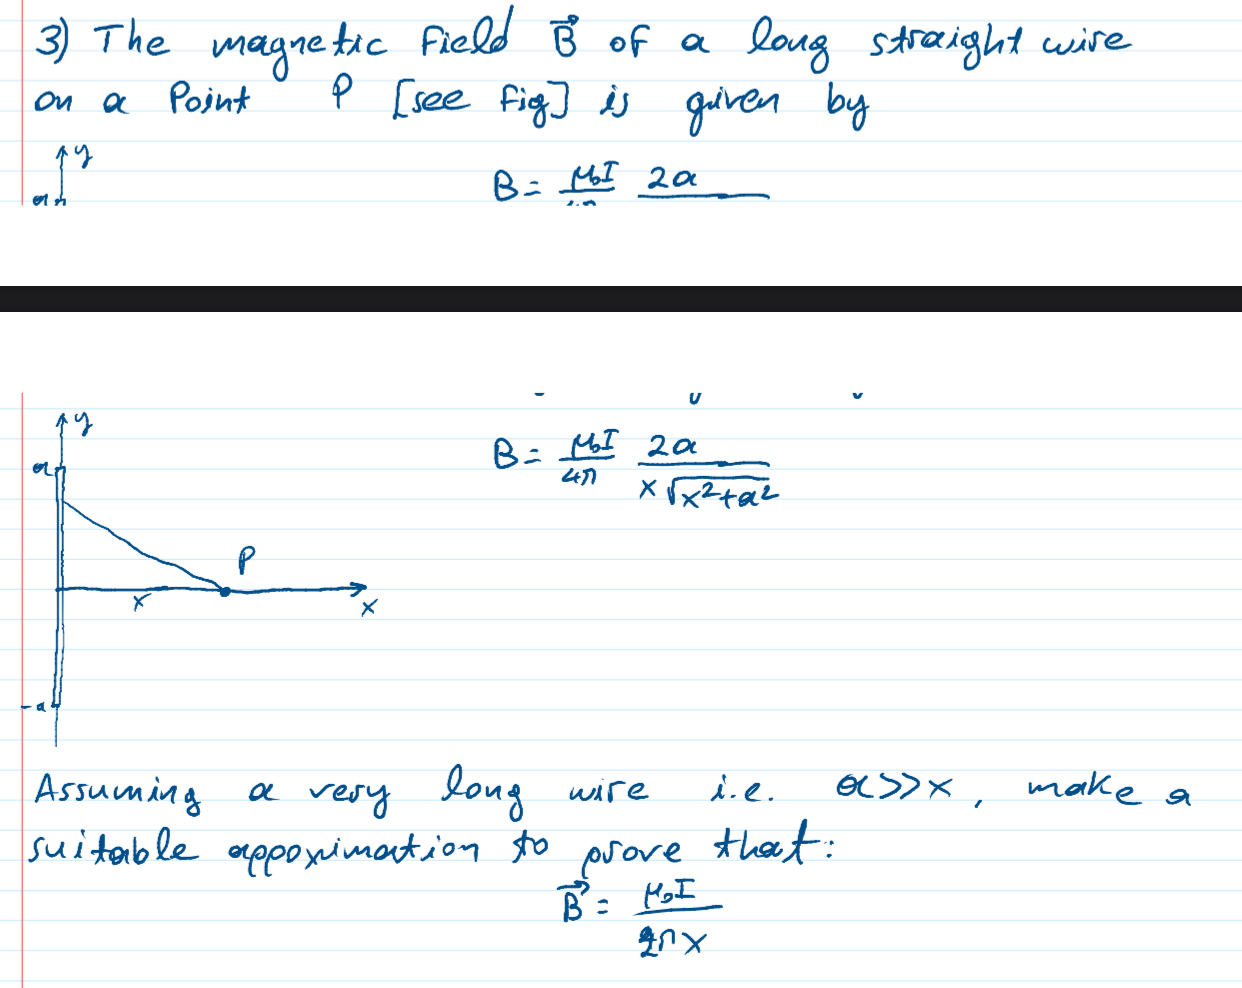 3) The magnetic field B⃗ of a long straight wire
on a Point P [see fig] is given by
y
a
B = μ₀I/4π 2a
y
a
B = μ₀I/4π 2a/x√x²+a²
P
x
x
-a
Assuming a very long wire i.e. a>>x, make a
suitable appoximation to prove that:
B⃗ = μ₀I/2πx